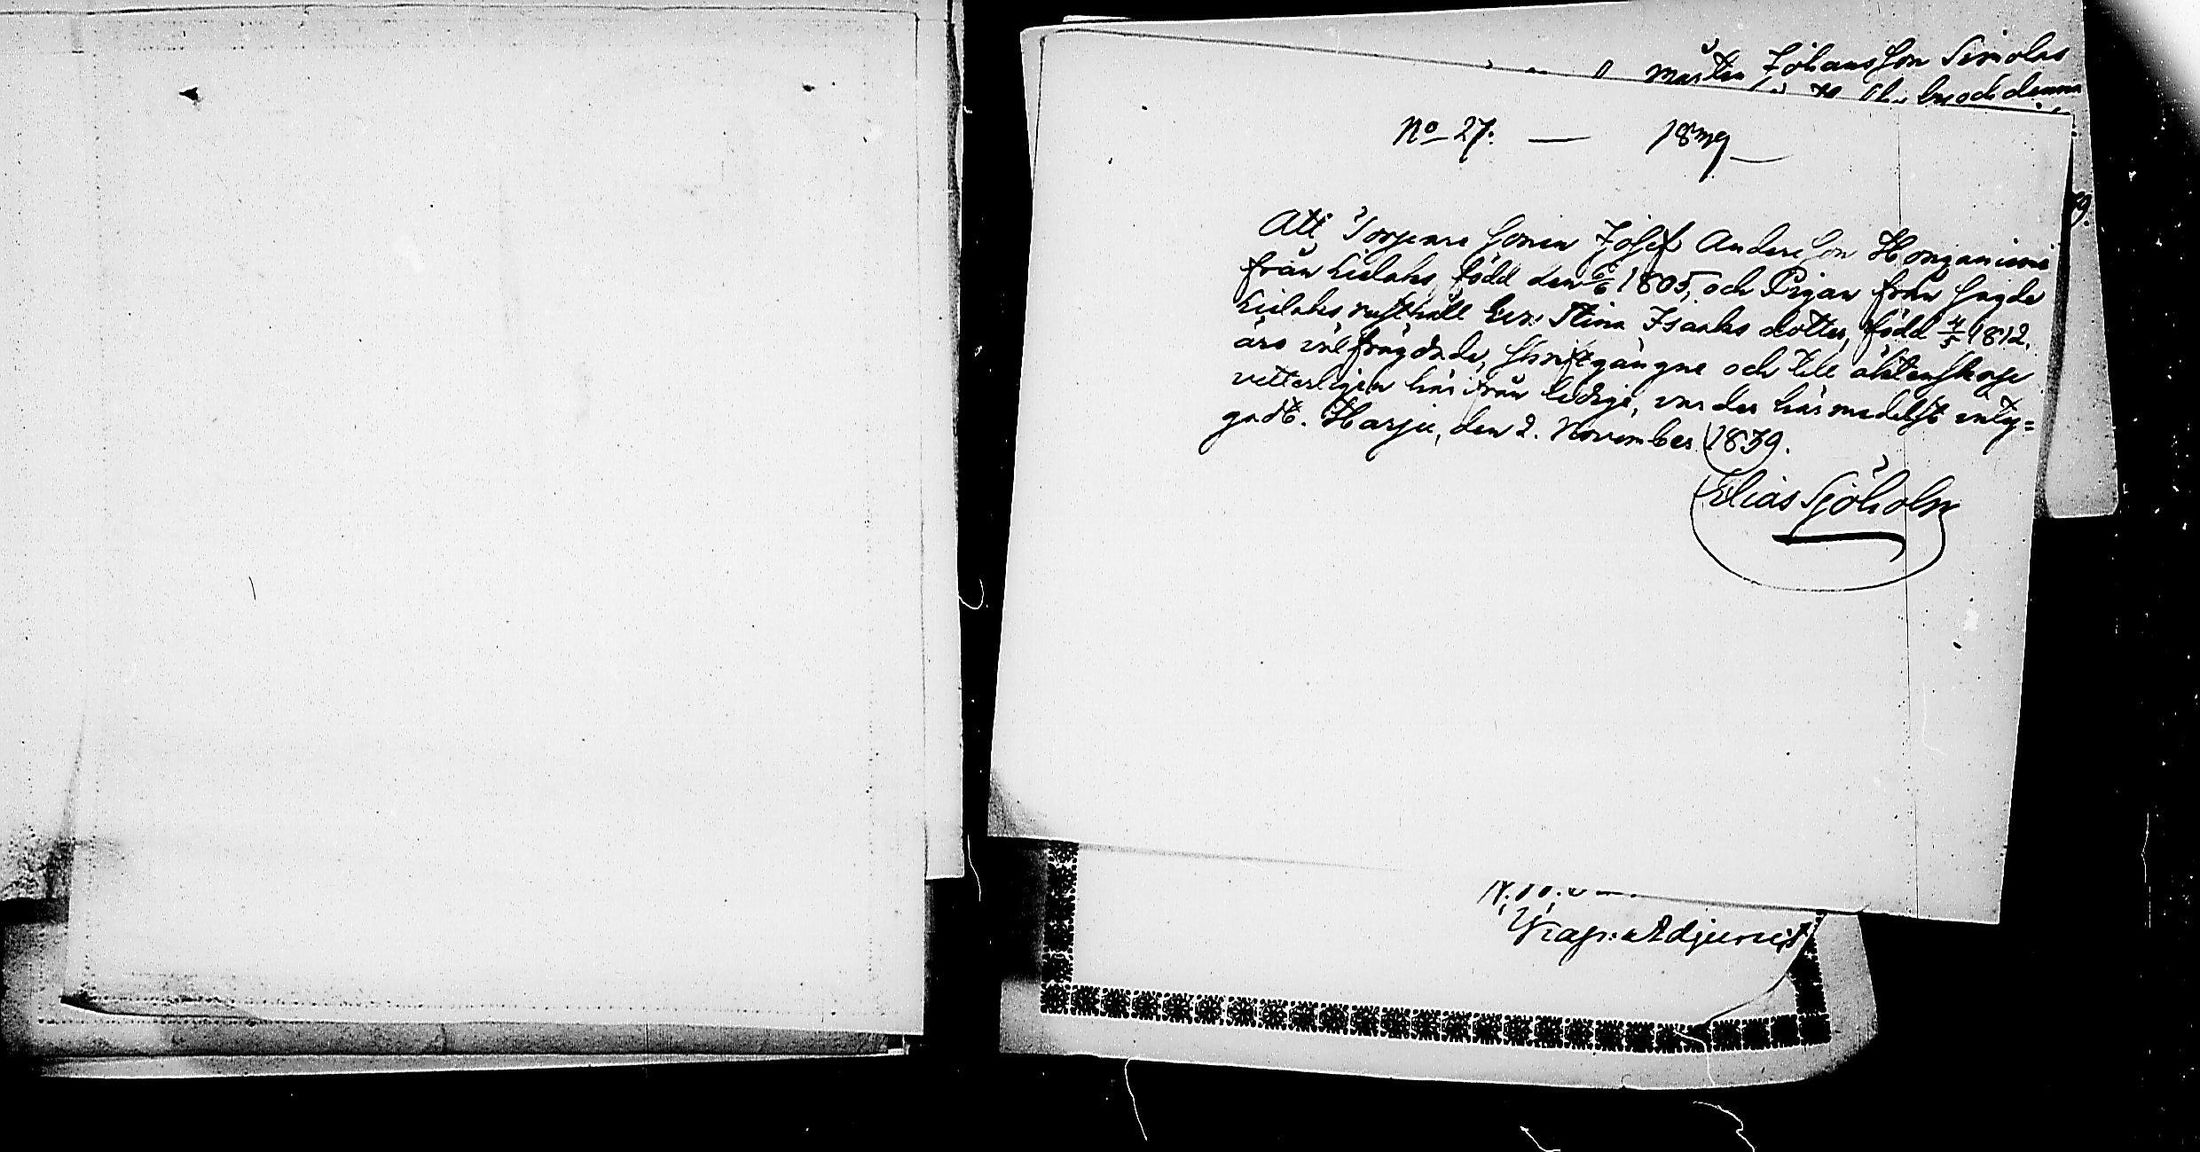 Mårten Johansson Simolas
by och denna
No 27. — 1839
9.
Att Torpare sonen Josef Andersson Honganiemi
från Kielaks, född den 6/6 1805, och Pigan från sagde
Kielaks rusthåll Eva Stina Isaaks dotter, född 4/5 1812.
äro välfrägdade, skriftgångne och till äktenskap
vetterligen härifrån ledige, varder härmedelst inty=
gadt. Harju, den 2. November 1839.
Elias Sjöholm
Adjunct